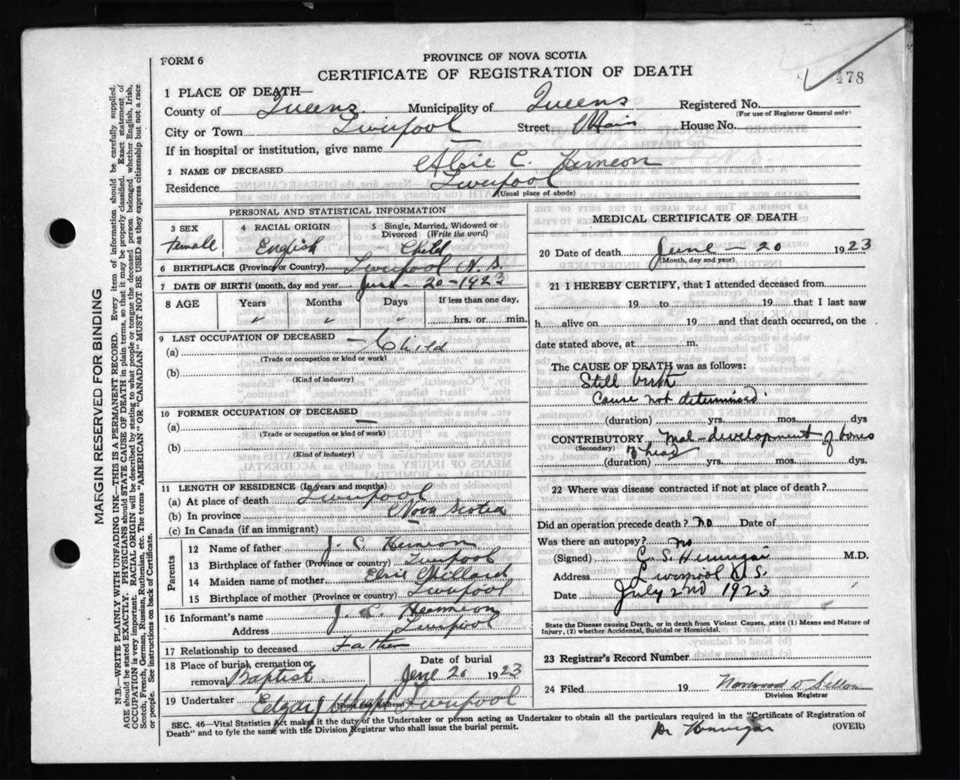 FORM 6
PROVINCE OF NOVA SCOTIA
CERTIFICATE OF REGISTRATION OF DEATH
478
1 PLACE OF DEATH—
County of Queens Municipality of Queens Registered No.
(For use of Registrar General only)
City or Town Liverpool Street Main House No.
If in hospital or institution, give name
2 NAME OF DECEASED Elsie C.
Residence Liverpool
(Usual place of abode)
PERSONAL AND STATISTICAL INFORMATION
3 SEX 4 RACIAL ORIGIN 5 Single, Married, Widowed or Divorced (Write the word)
Female English Child
6 BIRTHPLACE (Province or Country) Liverpool N.S.
7 DATE OF BIRTH (month, day and year) June - 20 - 1923
8 AGE Years Months Days If less than one day,
" " " hrs. or min.
9 LAST OCCUPATION OF DECEASED — Child
(a)
(Trade or occupation or kind of work)
(b)
(Kind of industry)
10 FORMER OCCUPATION OF DECEASED —
(a)
(Trade or occupation or kind of work)
(b)
(Kind of industry)
11 LENGTH OF RESIDENCE (In years and months)
(a) At place of death Liverpool
(b) In province Nova Scotia
(c) In Canada (if an immigrant) —
Parents
12 Name of father J. C.
13 Birthplace of father (Province or country) Liverpool
14 Maiden name of mother Elsie Millard
15 Birthplace of mother (Province or country) Liverpool
16 Informant's name J. C.
Address Liverpool
17 Relationship to deceased Father
18 Place of burial, cremation or removal Baptist Date of burial June 20 1923
19 Undertaker Liverpool
MEDICAL CERTIFICATE OF DEATH
20 Date of death June - 20 1923
(Month, day and year)
21 I HEREBY CERTIFY, that I attended deceased from
19 to 19 that I last saw
h alive on 19 and that death occurred, on
date stated above, at m.
The CAUSE OF DEATH was as follows:
Still birth
Cause not determined.
(duration) yrs. mos. dys
CONTRIBUTORY Mal-development of bones
(Secondary) of head
(duration) yrs. mos. dys.
22 Where was disease contracted if not at place of death?
Did an operation precede death? no Date of
Was there an autopsy? no
(Signed) M.D.
Address Liverpool N.S.
Date July 2nd 1923
State the Disease causing Death, or in death from Violent Causes, state (1) Means and Nature of
Injury, (2) whether Accidental, Suicidal or Homicidal.
23 Registrar's Record Number
24 Filed 19
Division Registrar
SEC. 46—Vital Statistics Act makes it the duty of the Undertaker or person acting as Undertaker to obtain all the particulars required in the "Certificate of Registration of
Death" and to fyle the same with the Division Registrar who shall issue the burial permit.
(OVER)
MARGIN RESERVED FOR BINDING
N.B.—WRITE PLAINLY WITH UNFADING INK—THIS IS A PERMANENT RECORD. Every item of information should be carefully supplied.
AGE should be stated EXACTLY. PHYSICIANS should STATE CAUSE OF DEATH in plain terms, so that it may be properly classified. Exact statement of
OCCUPATION is very important. RACIAL ORIGIN will be described by stating to what people or tongue the deceased person belonged whether English, Irish,
Scotch, French, German, Russian, Ruthenian, etc. The terms "AMERICAN" OR "CANADIAN" MUST NOT BE USED as they express citizenship but not a race
or people. See instructions on back of Certificate.